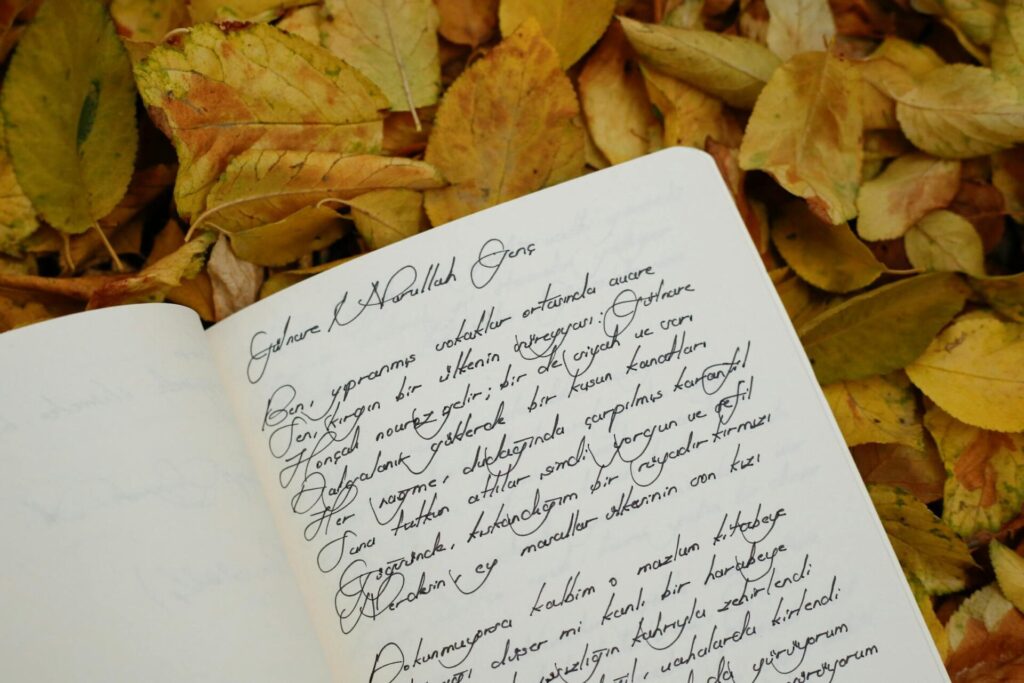 Gülnare \ Nurullah Genç
Ben, yıpranmış sokaklar ortasında avare
Sen, kırgın bir ülkenin süreyyası: Gülnare
Honçalı novruz gelir; bir de siyah ve sarı
Dalgalanık göklerde bir kuşun kanatları
Her nağme, dudağında çarpılmış karanfil
Sana tutkun atlılar şimdi yorgun ve sefil
Göğsünde, kıskandığım bir rüyadır kırmızı
Nerdesin, ey masallar ülkesinin son kızı
Dokunmuyorsa kalbim o mazlum kitabeye
düşer mi kanlı, bir harabeye
kahrıyla zehirlendi
vahalarda kirlendi
yürüyorum